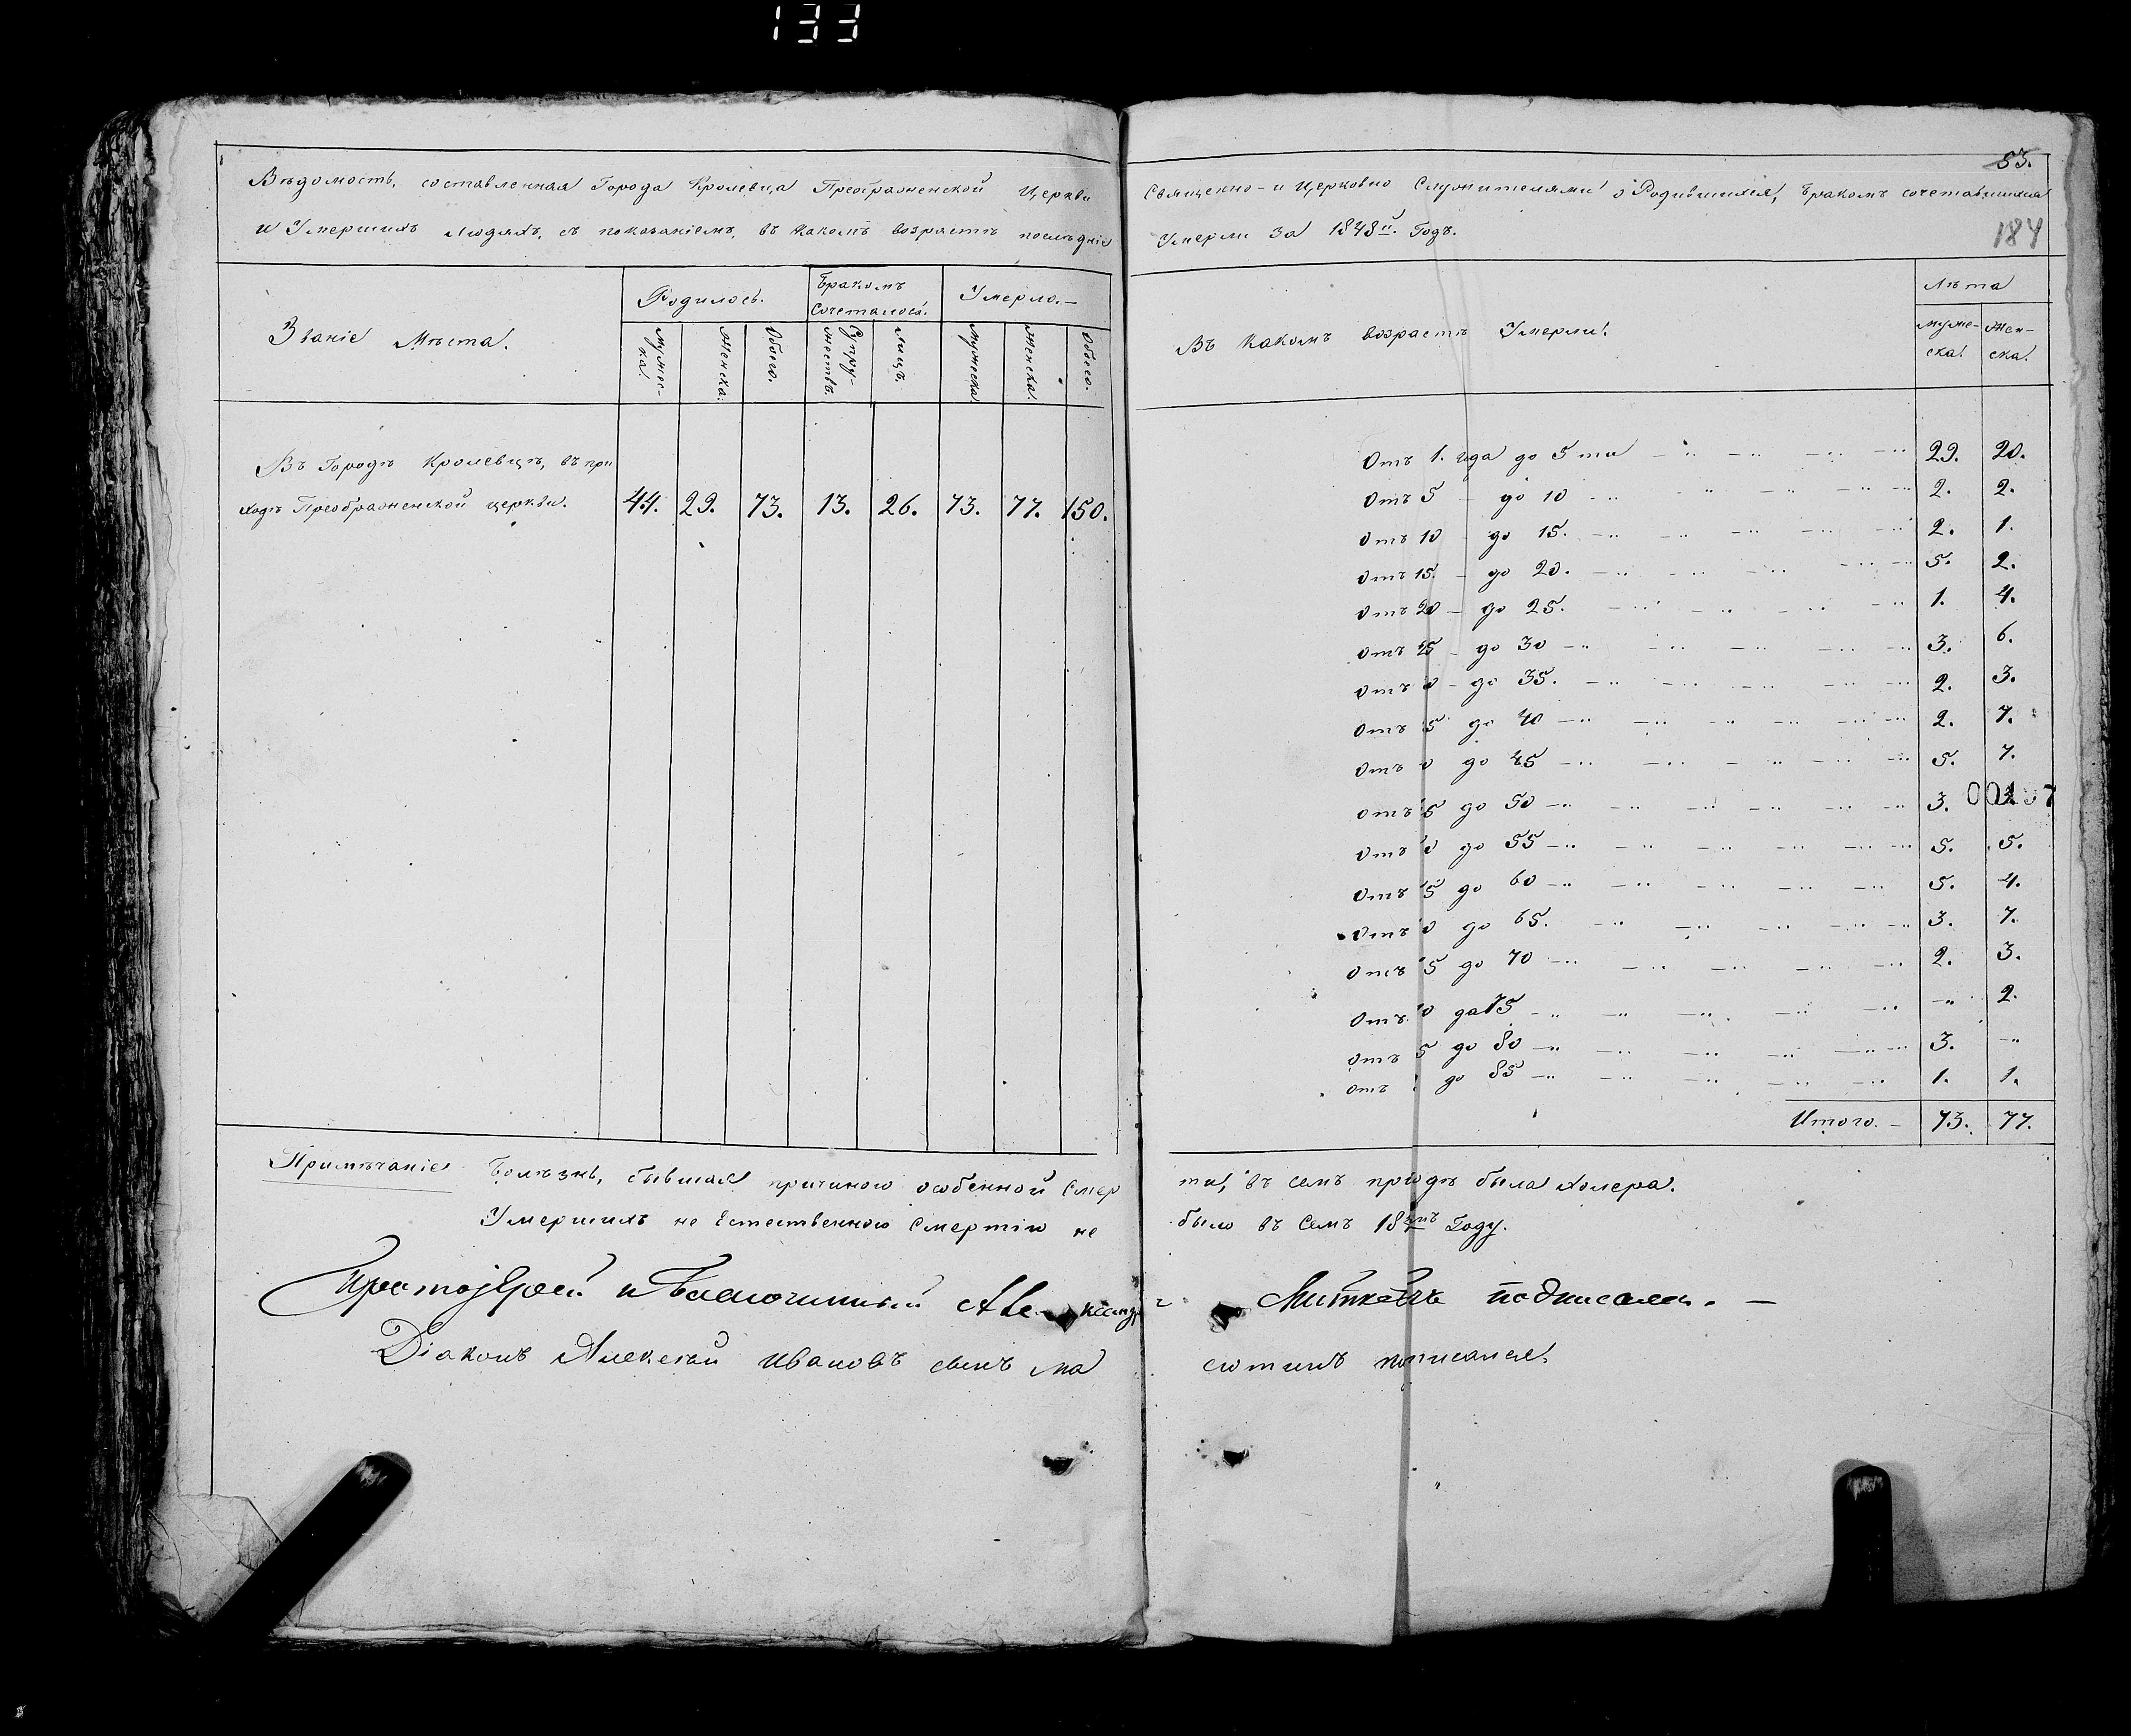 133
Вѣдомость, составленная Города Кролевца Преображенской Церкви
и Умершихъ людяхъ, съ показаніемъ, въ какомъ возрастѣ послѣдніе
Званіе Мѣста.
Родилось.
Бракомъ Сочеталось.
Умерло.
Мужес-ка.
Женска.
Обоего.
Супру-жествъ.
лицъ.
Мужеска
Женска.
Обоего.
Въ Городѣ Кролевцѣ, въ при
ходѣ Преображенской церкви. 44. 29. 73. 13. 26. 73. 77. 150.
53.
184
Священно- и Церковно Служителями о Родившихся, бракомъ сочетавшихся
Умерли за 1848й. Годъ.
Въ какомъ возрастѣ Умерли.
Лѣта
Муже-ска.
Жен-ска.
Отъ 1. года до 5 ти 29. 20.
Отъ 5 до 10 2. 2.
Отъ 10 до 15. 2. 1.
Отъ 15. до 20. 5. 2.
Отъ 20 до 25. 1. 4.
Отъ 25 до 30 3. 6.
Отъ до 35. 2. 3.
Отъ 5 до 40 2. 7.
Отъ 0 до 45 5. 7.
Отъ 5 до 50 3.
Отъ 0 до 55 5. 5.
Отъ 5 до 60 5. 4.
Отъ 0 до 65. 3. 7.
Отъ 5 до 70 2. 3.
Отъ 0 до 75 2.
Отъ 5 до 80 3.
Отъ до 85 1. 1.
Итого. 73. 77.
Примѣчаніе Болѣзнь, бывшая причиною особенной смер
ти, въ семъ приходѣ была холера.
Умершихъ не Естественною Смертію не
было въ Семъ 18 Году.
Протоіерей и Благочинный Александръ подписалъ.
Діаконъ Алексѣй Ивановъ сынъ